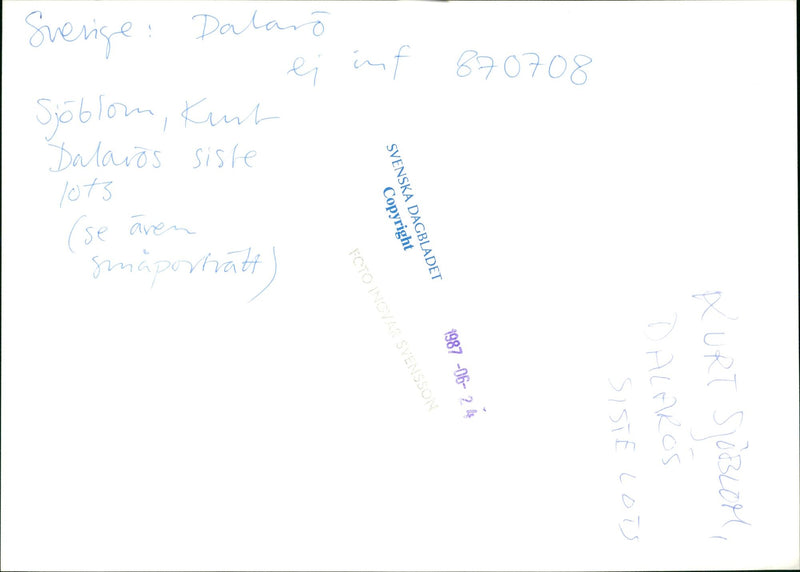 Sverige: Dalarö
ej inf 870708
Sjöblom, Kurt
Dalarös siste
lots
(se även
småporträtt)
SVENSKA DAGBLADET
Copyright
FOTO INGVAR SVENSSON
1987-06-24
KURT SJÖBLOM,
DALARÖS
SISTE LOTS